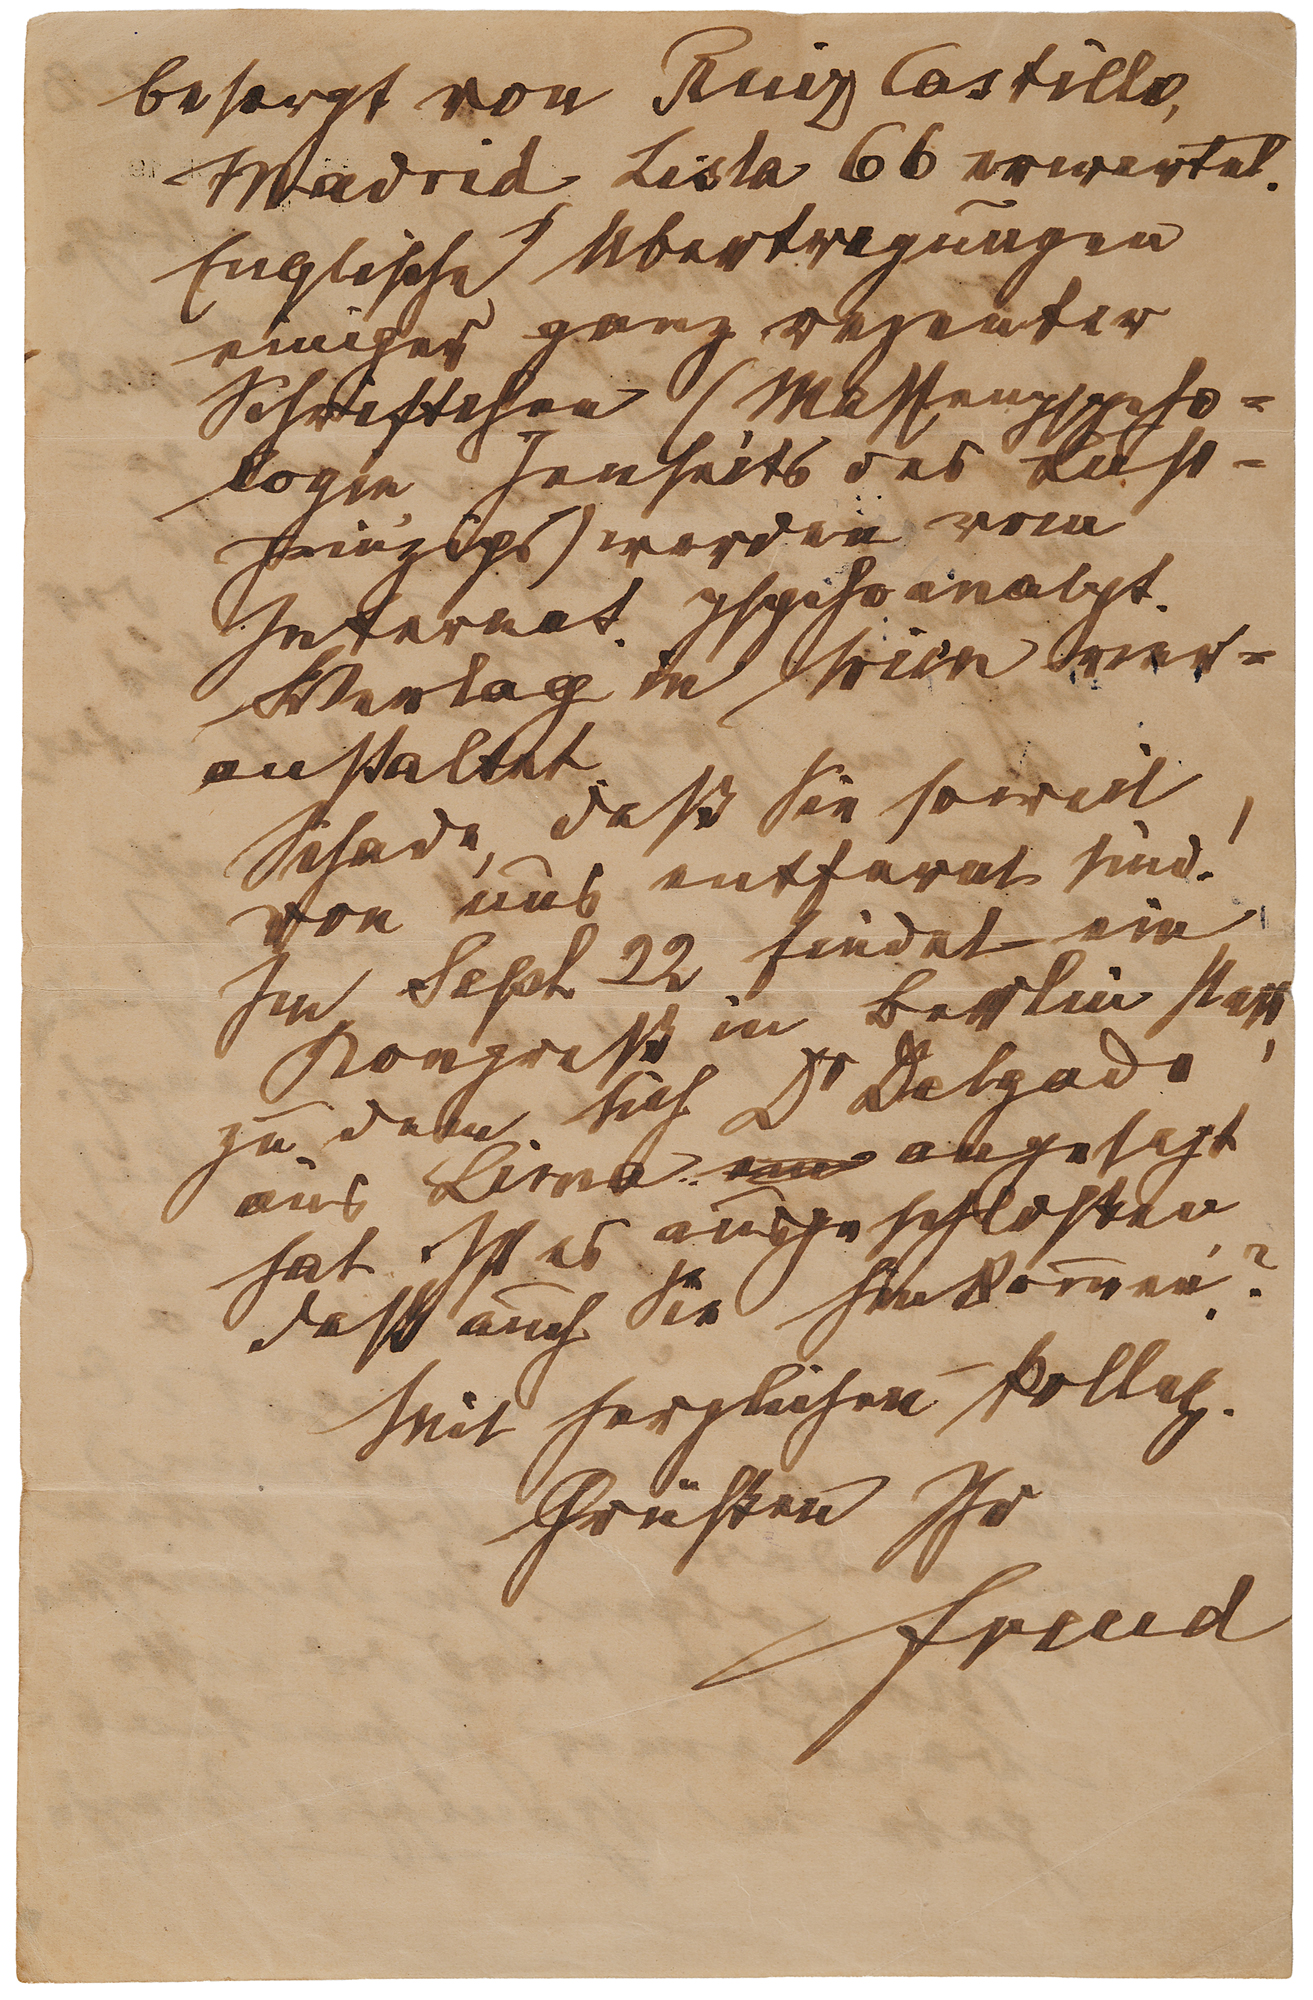 besorgt von Ruiz Castillo,
Madrid Lista 66 erwartet.
Englische Übertragungen
einiger ganz rezenter
Schriftchen (Massenpsycho-
logie, Jenseits des Lust-
prinzips) werden vom
Internat. psychoanalyt.
Verlag in Wien ver-
anstaltet
Schade, daß Sie soweit
von uns entfernt sind!
Im Sept 22 findet ein
Kongreß in Berlin statt,
zu dem sich Dr Delgado
aus Lima angesagt
hat. Ist es ausgeschlossen,
daß auch Sie hinkom̄en?
Mit herzlichen kolleg.
Grüßen Ihr
Freud